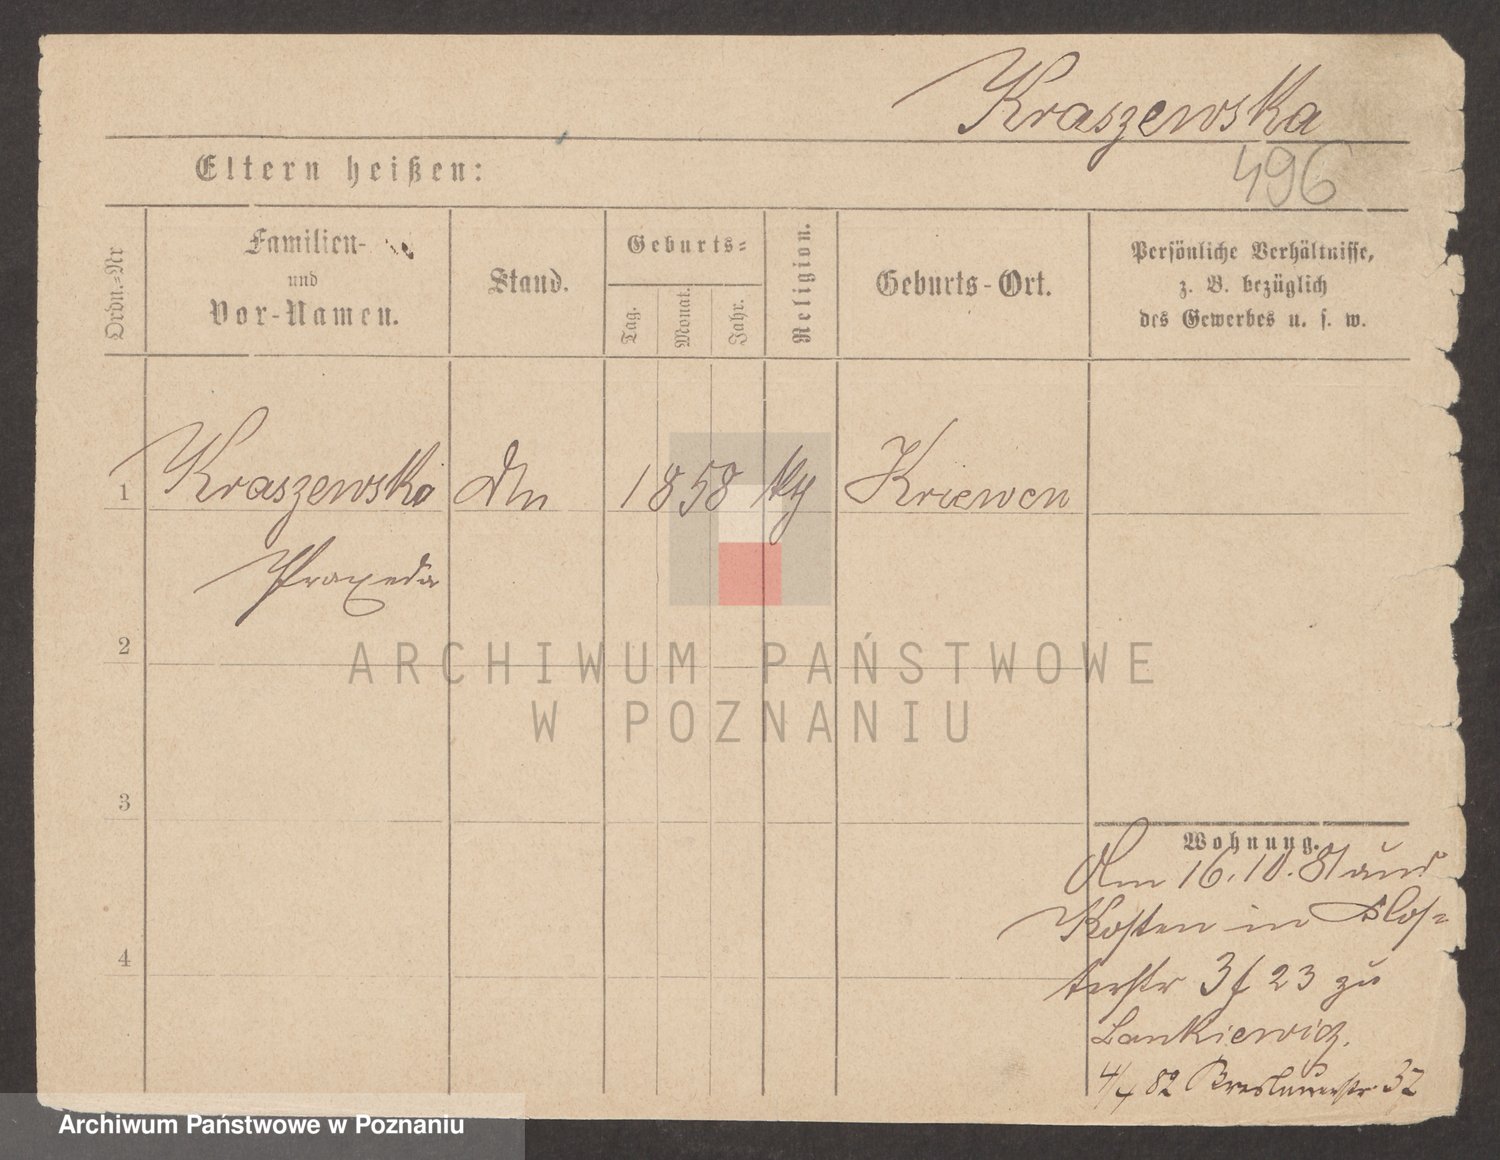 Kraszewska
496
Eltern heißen:
Ordn.-Nr
Familien-
und
Vor-Namen.
Stand.
Geburts-
Tag.
Monat.
Jahr.
Religion.
Geburts-Ort.
Persönliche Verhältnisse,
z. B. bezüglich
des Gewerbes u. s. w.
1
Kraszewska
1858
Kriewen
Praxeda
2
ARCHIWUM PAŃSTWOWE
W POZNANIU
3
Wohnung.
16.10.
Kosten in Klos-
terstr 23 zu
Lankiewicz.
4
82 Breslauerstr 32
Archiwum Państwowe w Poznaniu